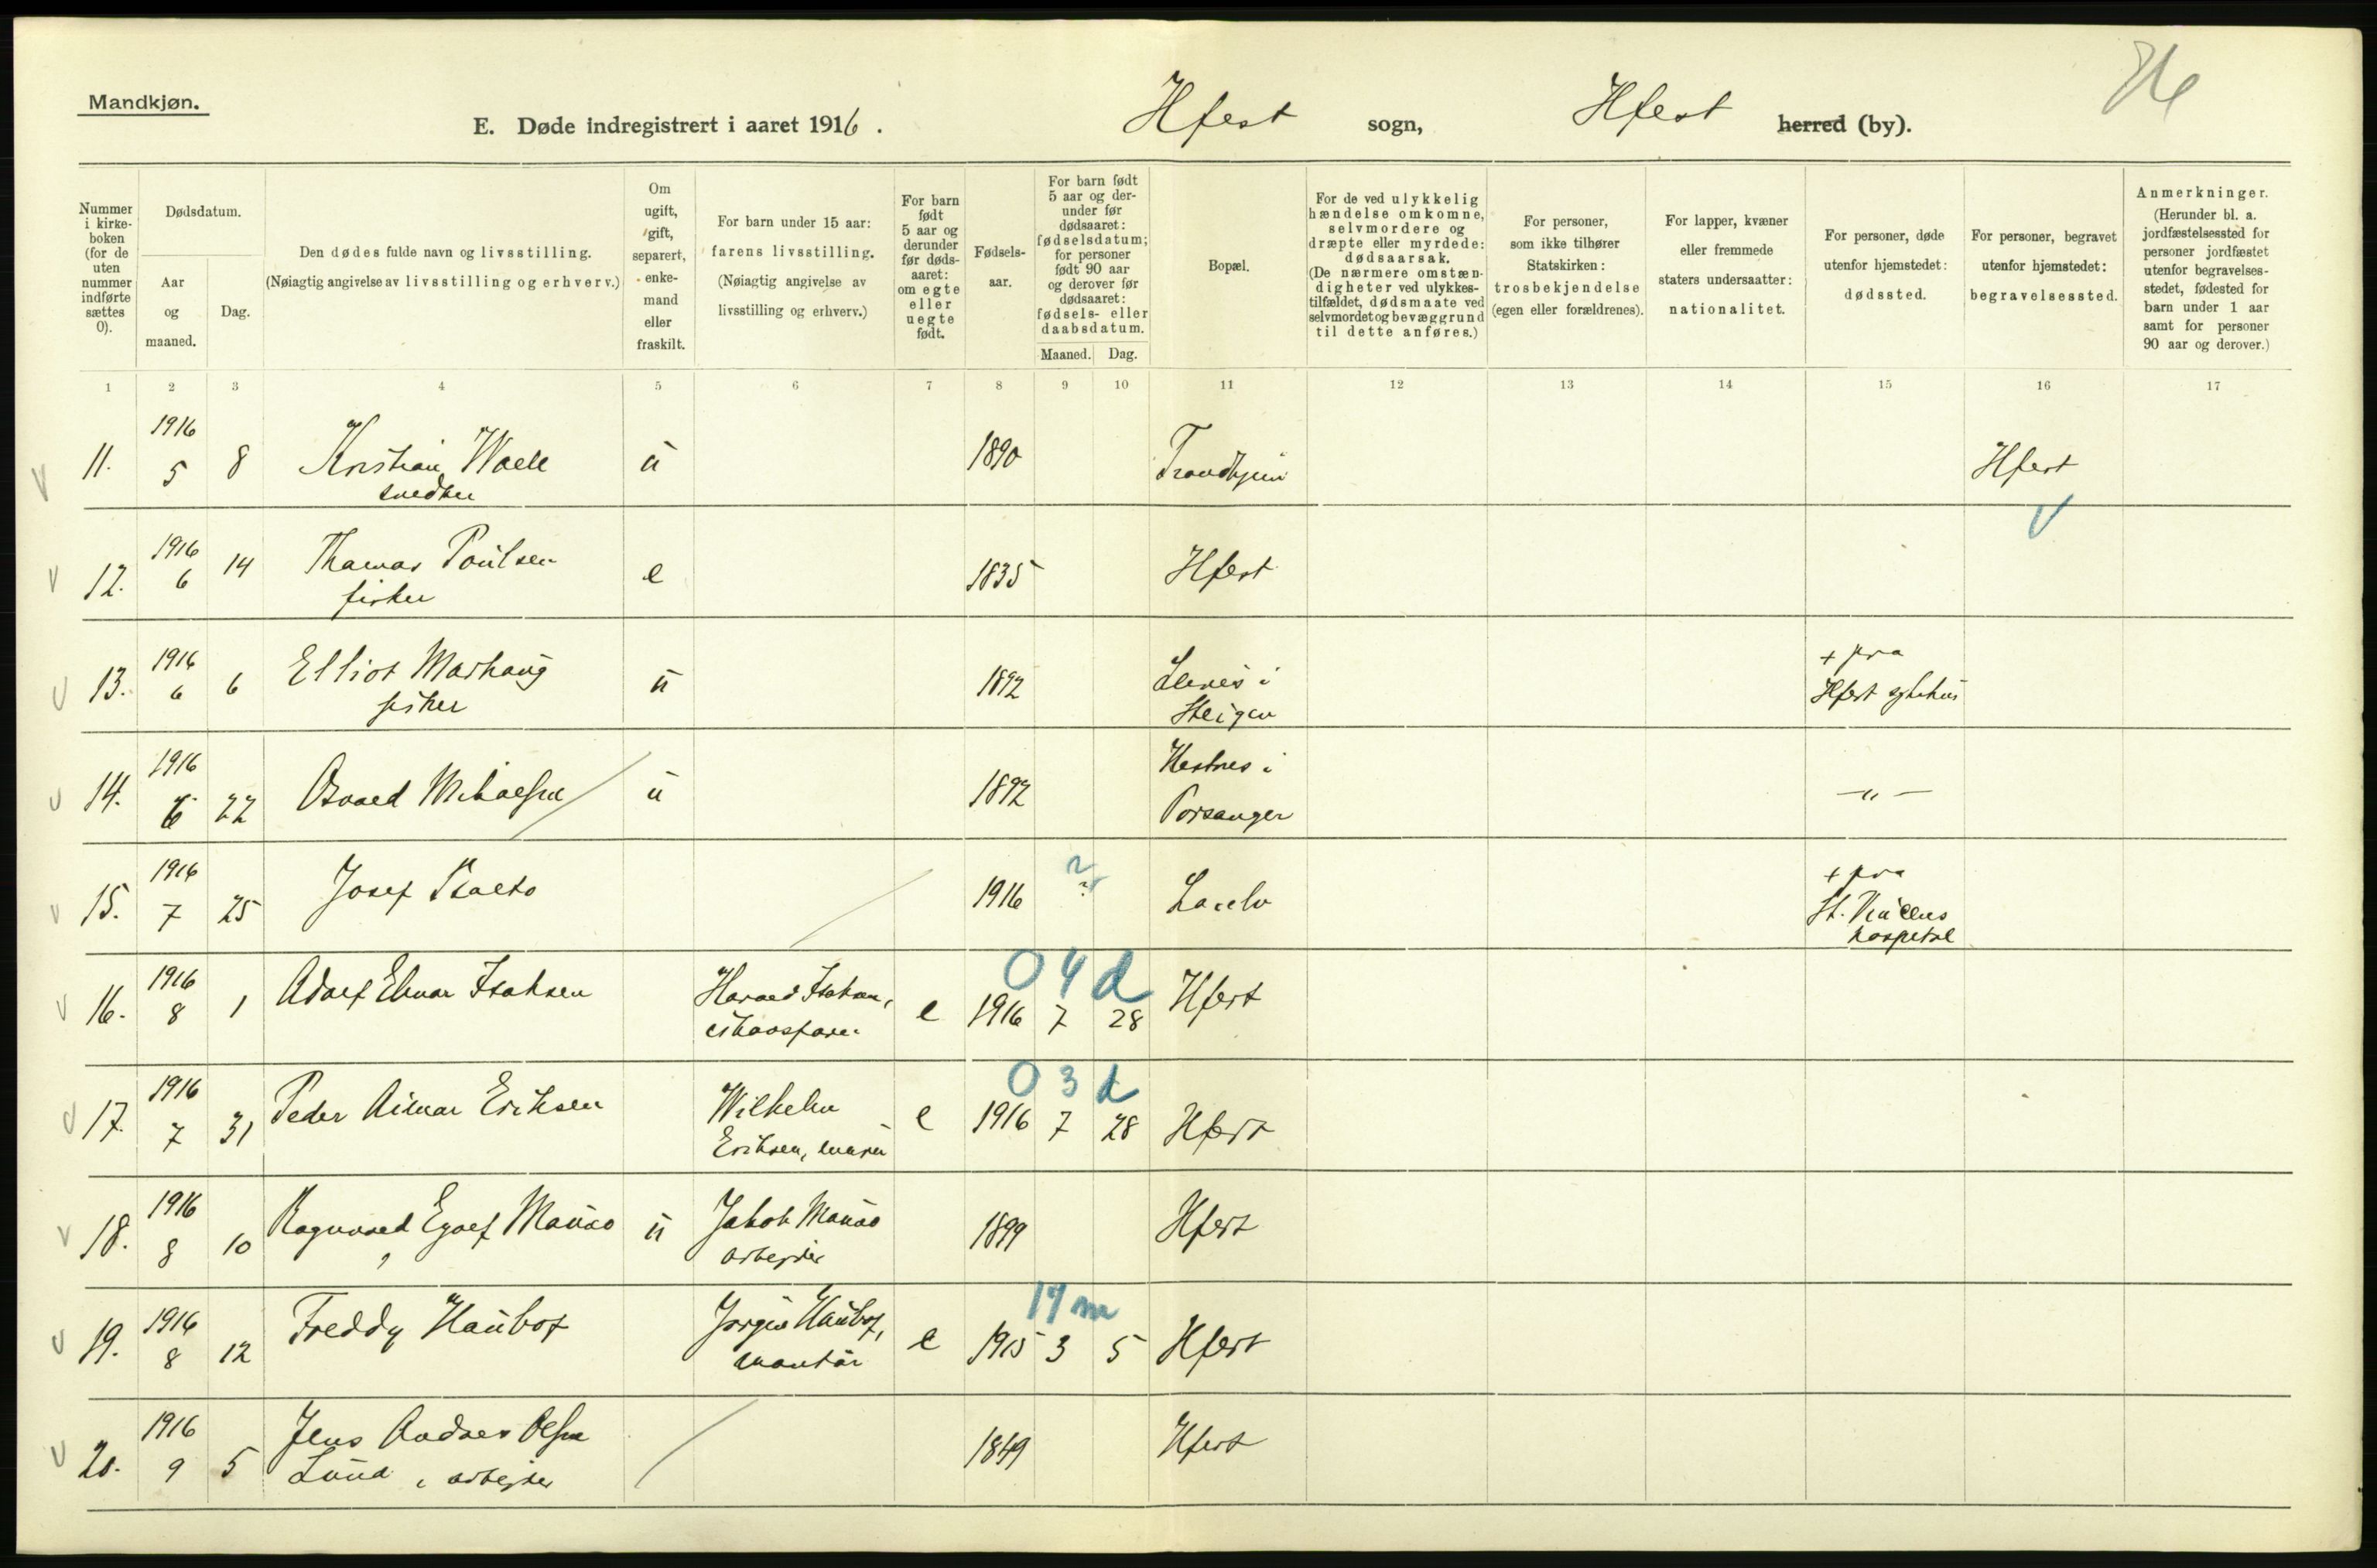 Mandkjøn.
E. Døde indregistrert i aaret 1916.
Hfest sogn,
Hfest herred (by).
Nummer i kirke-boken (for de uten nummer indførte sættes 0).
Dødsdatum.
Aar og maaned.
Dag.
Den dødes fulde navn og livsstilling.
(Nøiagtig angivelse av livsstilling og erhverv.)
Om ugift, gift, separert, enke-mand eller fraskilt.
For barn under 15 aar:
farens livsstilling.
(Nøiagtig angivelse av livsstilling og erhverv.)
For barn født 5 aar og derunder før døds-aaret: om egte eller uegte født.
Fødsels-aar.
For barn født 5 aar og der-under før dødsaaret: fødselsdatum; for personer født 90 aar og derover før dødsaaret: fødsels- eller daabsdatum.
Maaned. Dag.
Bopæl.
For de ved ulykkelig hændelse omkomne, selvmordere og dræpte eller myrdede: dødsaarsak.
(De nærmere omstæn-digheter ved ulykkes-tilfældet, dødsmaate ved selvmordet og bevæggrund til dette anføres.)
For personer, som ikke tilhører Statskirken: trosbekjendelse (egen eller forældrenes).
For lapper, kvæner eller fremmede staters undersaatter: nationalitet.
For personer, døde utenfor hjemstedet: dødssted.
For personer, begravet utenfor hjemstedet: begravelsessted.
Anmerkninger.
(Herunder bl. a. jordfæstelsessted for personer jordfæstet utenfor begravelses-stedet, fødested for barn under 1 aar samt for personer 90 aar og derover.)
1 2 3 4 5 6 7 8 9 10 11 12 13 14 15 16 17
11. 1916 5 8 Kristian Woll ū 1890 Trondhjem Hfest
snedker
12. 1916 6 14 Thomas Poulsen e 1835 Hfest
fisker
13. 1916 6 6 Elliot Marhaug ū 1892 i Steigen + paa Hfest sykehus
fisker
14. 1916 6 22 Osvald Mikalsen ū 1892 Hestnes i Porsanger — „ —
15. 1916 7 25 Josef 1916 ? + paa St. hospital
16. 1916 8 1 Adolf Isaksen Harald Isaksen, e 1916 7 28 Hfest
0 4 d
17. 1916 7 31 Peder Eriksen Wilhelm Eriksen, e 1916 7 28 Hfest
0 3 d
18. 1916 8 10 Ragnvald ū Jakob 1899 Hfest
arbeider
19. 1916 8 12 Freddy Haubof Jørgen Haubof, montør e 1915 3 5 Hfest
17 m
20. 1916 9 5 Jens Andreas Olsen 1849 Hfest
Lund, arbeider